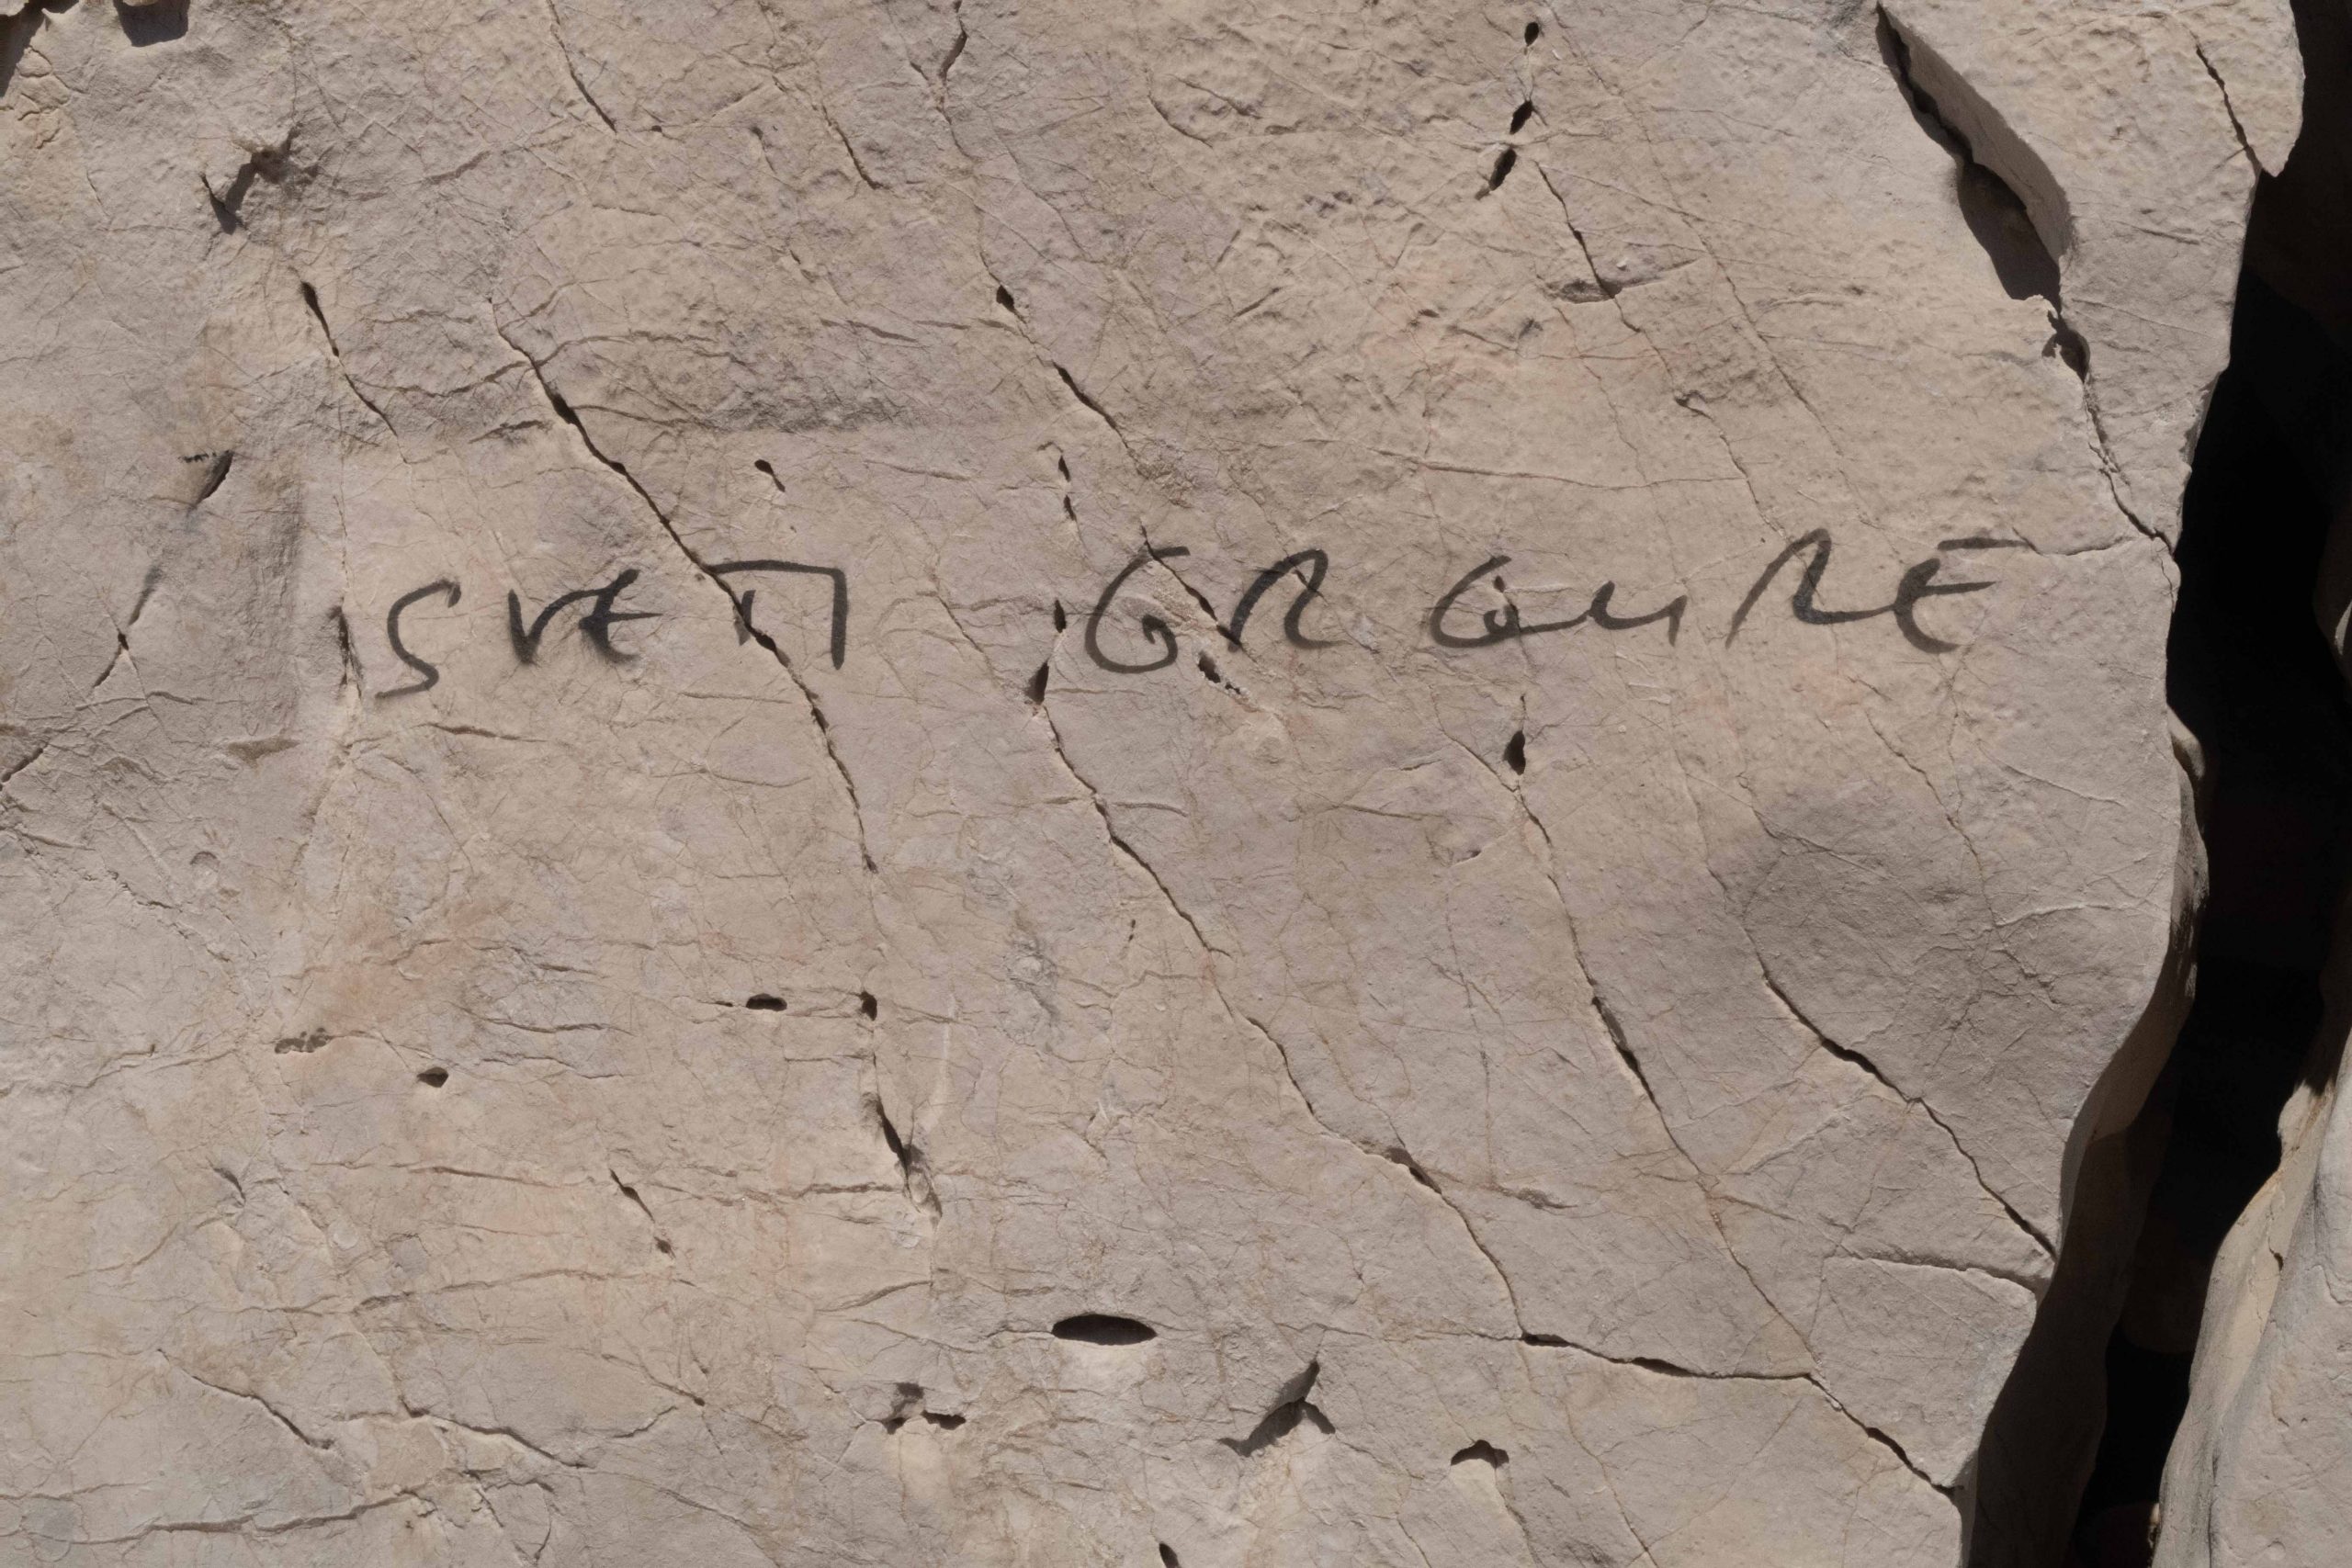 SVETI GRGURE